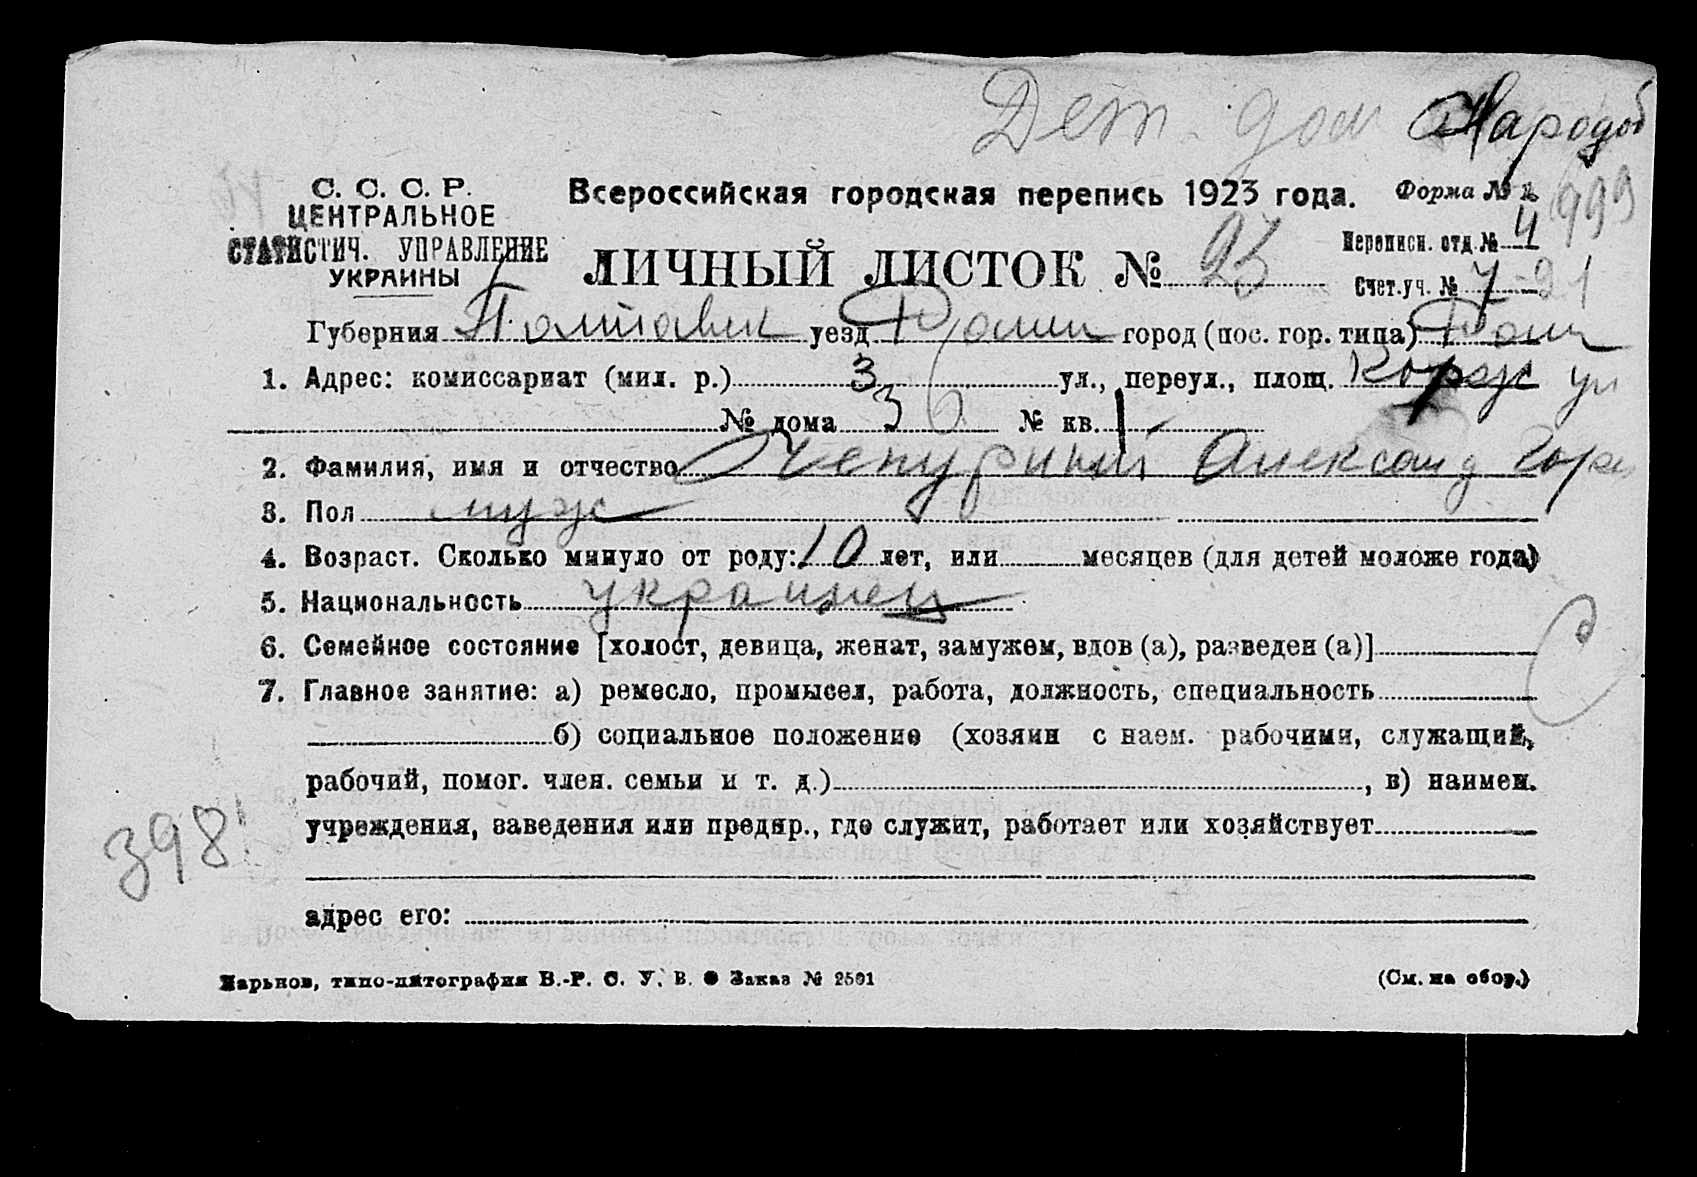 Дет. дом Народоб
С. С. С. Р.
ЦЕНТРАЛЬНОЕ
СТАТИСТИЧ. УПРАВЛЕНИЕ
УКРАИНЫ
Всероссийская городская перепись 1923 года. Форма №
999
ЛИЧНЫЙ ЛИСТОК № 23
Переписн. отд. № 4
Счет. уч. № 7-21
Губерния Полтавск уезд Ромны город (пос. гор. типа) Ромн
1. Адрес: комиссариат (мил. р.) 3 ул., переул., площ. ул
№ дома 36 № кв. 1
2. Фамилия, имя и отчество Чепурный Александ
3. Пол муж
4. Возраст. Сколько минуло от роду: 10 лет, или месяцев (для детей моложе года)
5. Национальность украинец
6. Семейное состояние [холост, девица, женат, замужем, вдов (а), разведен (а)]
7. Главное занятие: а) ремесло, промысел, работа, должность, специальность
б) социальное положение (хозяин с наем. рабочими, служащий,
рабочий, помог. член. семьи и т. д.) , в) наимен.
учреждения, заведения или предпр., где служит, работает или хозяйствует
398
адрес его:
Харьков, типо-литография В.-Р. С. У. В. Заказ № 2501 (См. на обор.)